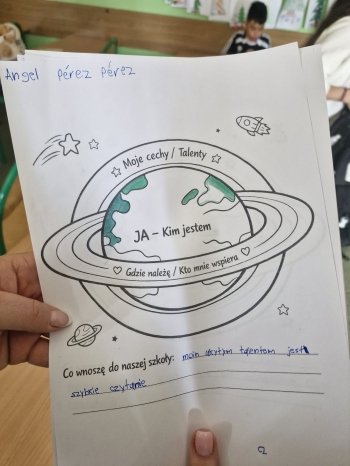 Angel Pérez Pérez
Moje cechy / Talenty
JA – Kim jestem
Gdzie należę / Kto mnie wspiera
Co wnoszę do naszej szkoły: moin ukrytym talentem jest
szybkie czytanie